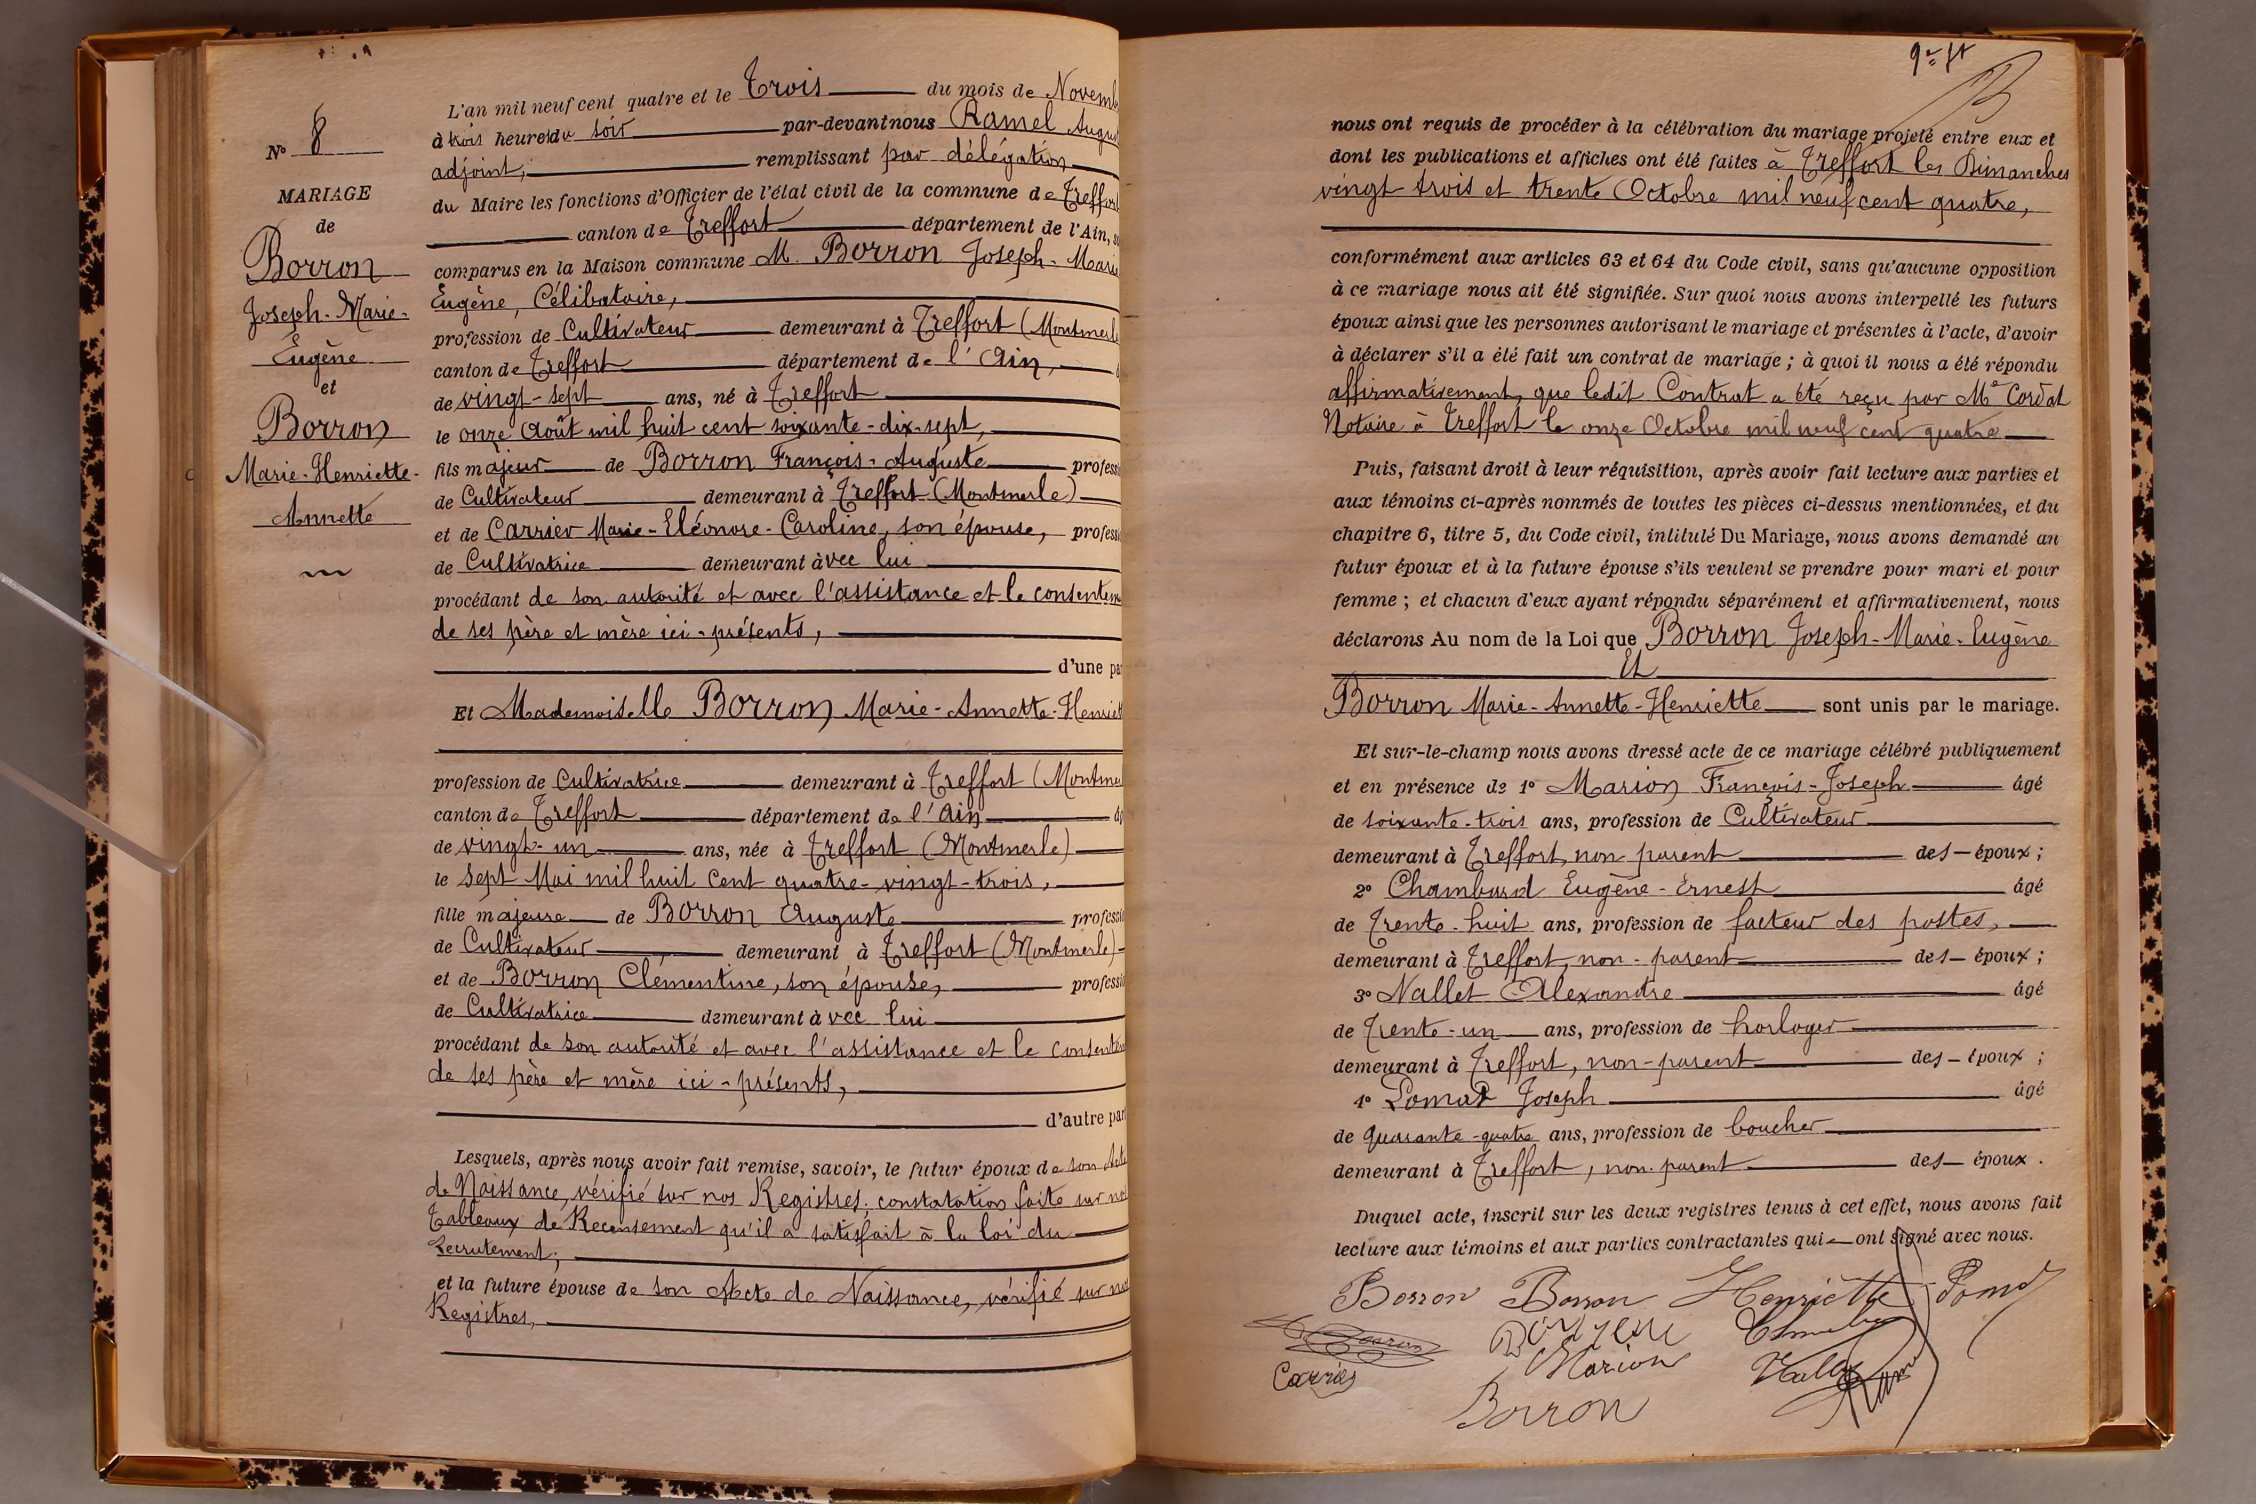 N° 8
MARIAGE
de
Borron
Joseph-Marie-
Eugène
et
Borron
Marie-Henriette-
Annette
L'an mil neuf cent quatre et le Trois du mois de Novemb
à trois heures du soir par-devant nous Ramel August
adjoint, remplissant par délégation
du Maire les fonctions d'Officier de l'état civil de la commune de Treffort
canton de Treffort département de l'Ain, s
comparus en la Maison commune M. Borron Joseph-Marie
Eugène, Célibataire,
profession de Cultivateur demeurant à Treffort (Montmerle
canton de Treffort département de l'Ain,
de vingt-sept ans, né à Treffort
le onze Août mil huit cent soixante-dix-sept,
fils majeur de Borron François-Auguste professi
de Cultivateur demeurant à Treffort (Montmerle)
et de Carrier Marie-Eléonore-Caroline, son épouse, professi
de Cultivatrice demeurant àvec lui
procédant de son autorité et avec l'assistance et le consentem
de ses père et mère ici-présents,
d'une pa
Et Mademoiselle Borron Marie-Annette-Henriett
profession de Cultivatrice demeurant à Treffort (Montmer
canton de Treffort département de l'Ain
de vingt-un ans, née à Treffort (Montmerle)
le sept Mai mil huit Cent quatre-vingt-trois,
fille majeure de Borron Auguste professi
de Cultivateur demeurant à Treffort (Montmerle)
et de Borron Clémentine, son épouse, professi
de Cultivatrice demeurant àvec lui
procédant de son autorité et avec l'assistance et le consentem
de ses père et mère ici-présents,
d'autre par
Lesquels, après nous avoir fait remise, savoir, le futur époux de son Acte
de Naissance, vérifié sur nos Registres; constatation faite sur nos
Tableaux de Recensement qu'il a satisfait à la loi du
Recrutement;
et la future épouse de son Acte de Naissance, vérifié sur nos
Registres,
nous ont requis de procéder à la célébration du mariage projeté entre eux et
dont les publications et affiches ont été faites à Treffort les Dimanches
vingt trois et trente Octobre mil neuf cent quatre,
conformément aux articles 63 et 64 du Code civil, sans qu'aucune opposition
à ce mariage nous ait été signifiée. Sur quoi nous avons interpellé les futurs
époux ainsi que les personnes autorisant le mariage et présentes à l'acte, d'avoir
à déclarer s'il a été fait un contrat de mariage ; à quoi il nous a été répondu
affirmativement, que ledit Contrat a été reçu par Me Cordat
Notaire à Treffort le onze Octobre mil neuf cent quatre
Puis, faisant droit à leur réquisition, après avoir fait lecture aux parties et
aux témoins ci-après nommés de toutes les pièces ci-dessus mentionnées, et du
chapitre 6, titre 5, du Code civil, intitulé Du Mariage, nous avons demandé au
futur époux et à la future épouse s'ils veulent se prendre pour mari et pour
femme ; et chacun d'eux ayant répondu séparément et affirmativement, nous
déclarons Au nom de la Loi que Borron Joseph-Marie-Eugène
Et
Borron Marie-Annette-Henriette sont unis par le mariage.
Et sur-le-champ nous avons dressé acte de ce mariage célébré publiquement
et en présence de 1° Marion François-Joseph âgé
de soixante-trois ans, profession de Cultivateur
demeurant à Treffort, non parent des époux ;
2° Chambard Eugène-Ernest âgé
de Trente-huit ans, profession de facteur des postes,
demeurant à Treffort, non-parent des époux ;
3° Nallet Alexandre âgé
de Trente-un ans, profession de horloger
demeurant à Treffort, non-parent des époux ;
4° Pomat Joseph âgé
de quarante-quatre ans, profession de boucher
demeurant à Treffort, non-parent des époux.
Duquel acte, inscrit sur les deux registres tenus à cet effet, nous avons fait
lecture aux témoins et aux parties contractantes qui ont signé avec nous.
Borron Borron Henriette
Carrier Marion
Borron